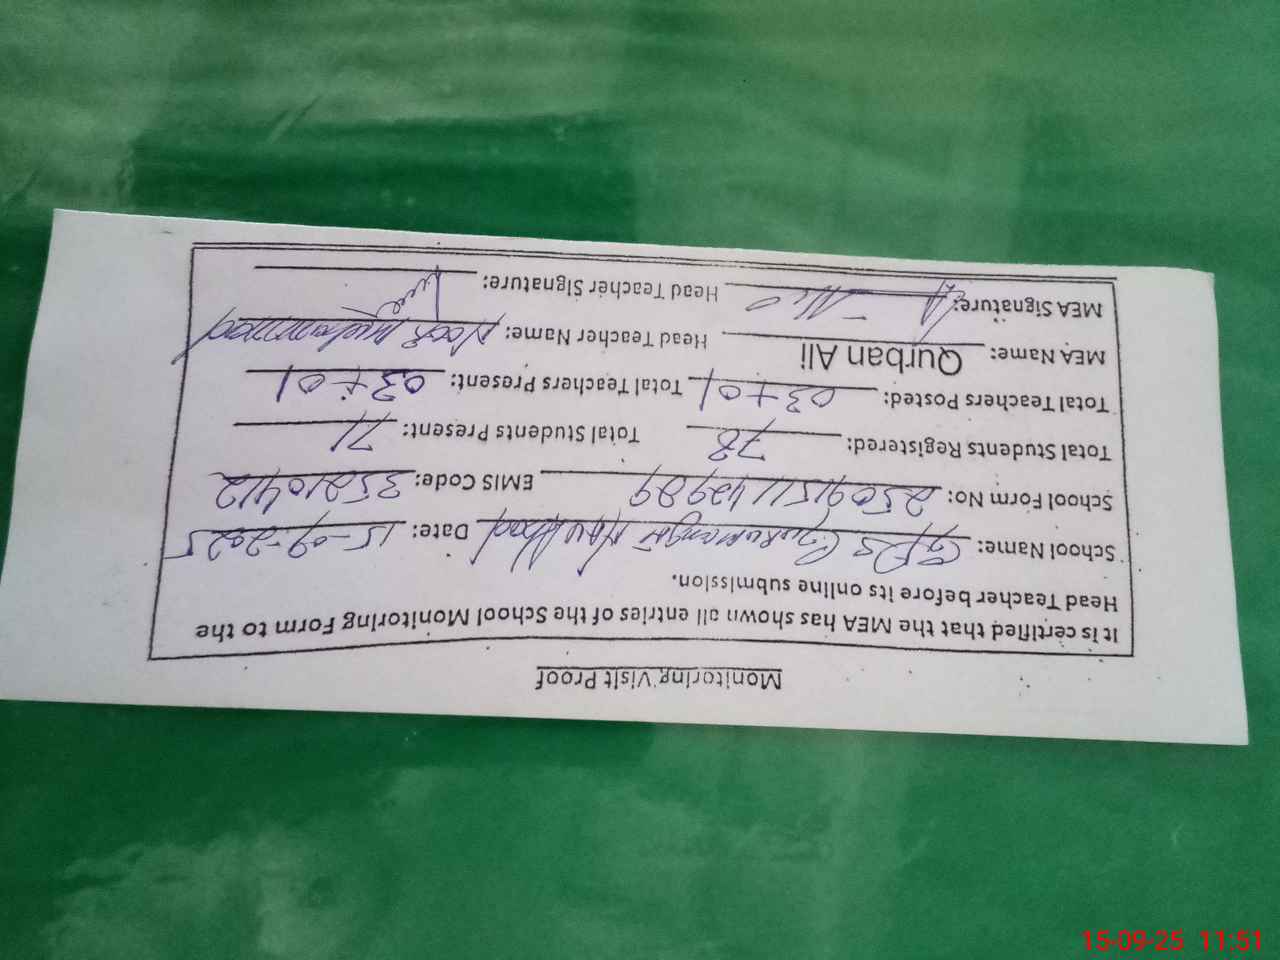 Monitoring Visit Proof
It is certified that the MEA has shown all entries of the School Monitoring Form to the
Head Teacher before its online submission.
School Name: GPS Date: 15-09-2025
School Form No: EMIS Code: 35210412
Total Students Registered: 78 Total Students Present: 71
Total Teachers Posted: 03+01 Total Teachers Present: 03+01
MEA Name: Qurban Ali Head Teacher Name: Noor Muhammad
MEA Signature: Head Teacher Signature:
15-09-25 11:51